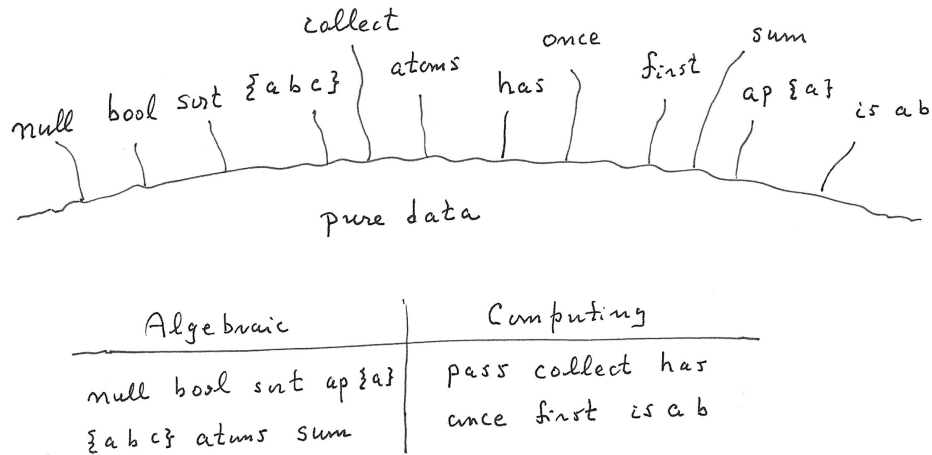 null bool sort {a b c} collect atoms has once first sum ap {a} is a b
pure data
Algebraic Computing
null bool sort ap {a} pass collect has
{a b c} atoms sum once first is a b